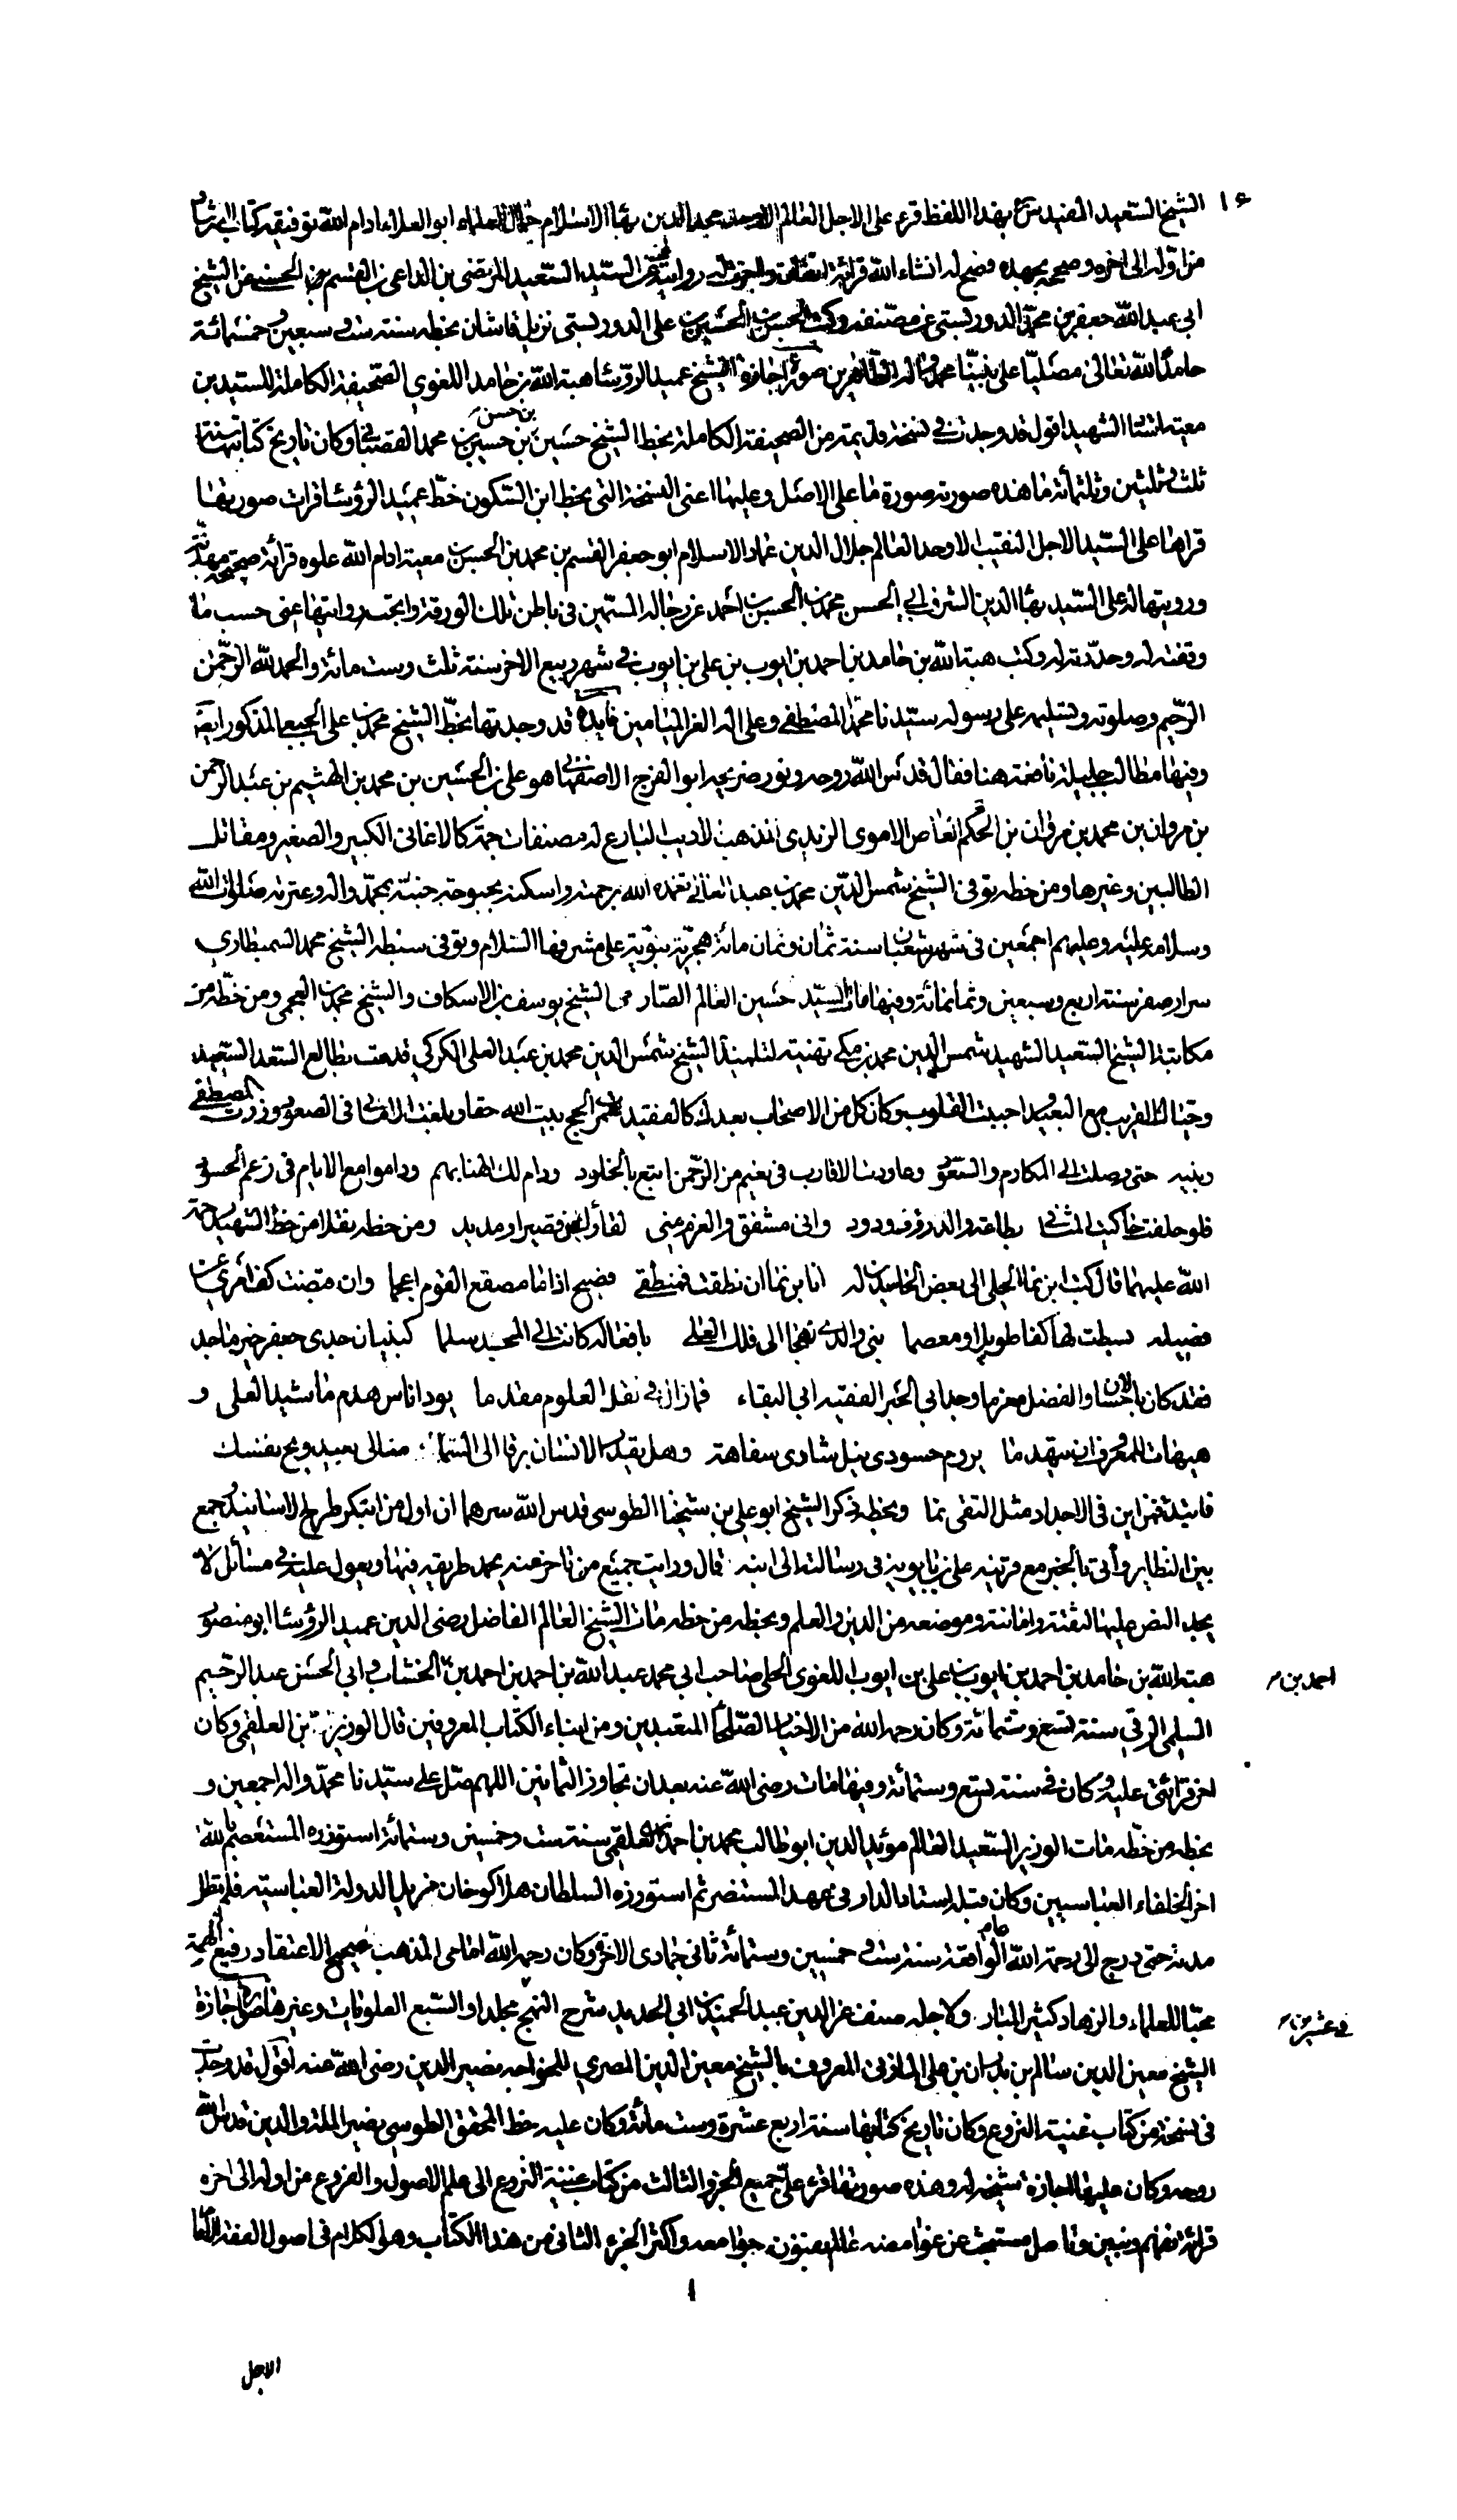 ١٦
الشيخ السعيد المفيد بهذا اللفظ قرء على الاجل العالم مجد الدين بهاء الاسلام جمال العلماء ابو العلاء ادام الله توفيقه كتاب الارشاد
من اوله الى اخره وصححه بجهده وصح له انشاء الله قرائة روايته عن السيد السعيد المرتضى بن الداعى بن القسم الحسنى عن الشيخ
ابى عبد الله جعفر بن محمد الدوريستى عن مصنفه وكتب الحسن بن الحسين بن على الدوريستى نزيل قاشان بخطه سنة ست وسبعين وخمسمائة
حامدا لله تعالى مصليا على نبينا محمد واله الطاهرين صورة اجازة الشيخ عميد الرؤسا هبة الله بن حامد اللغوى الصحيفة الكاملة للسيد بن
معية استاد الشهيد اقول قد وجدت فى نسخة قديمة من الصحيفة الكاملة بخط الشيخ حسين بن حسن بن حسين بن محمد وكان تاريخ كتابتها سنة
ثلث وثلثين وثلثمائة ما هذه صورته صورة ما على الاصل وعليها اعنى النسخة التى بخط ابن السكون خط عميد الرؤسا قرات صورتها
قراها على السيد الاجل النقيب الاوحد العالم جلال الدين عماد الاسلام ابو جعفر القسم بن محمد بن الحسن بن معية ادام الله علوه قرائة صحيحة مهذبة
ورويتها له على السيد بهاء الدين الشرف ابى الحسن محمد بن الحسن بن احمد عن رجاله المسمين فى باطن تلك الورقة وابحته روايتها عنى حسب ما
وقفته له وحددته له وكتب هبة الله بن حامد بن احمد بن ايوب بن على بن ايوب فى شهر ربيع الاخر سنة ثلث وست مائة والحمد لله الرحمن
الرحيم وصلوته وتسليمه على رسوله سيدنا محمد المصطفى وعلى اله الغر الميامين فايدة قد وجدتها بخط الشيخ محمد بن على الجبعى المذكور ايضا
وفيها مطالب جليلة نافعة هنا فقال قدس الله روحه ونور ضريحه ابو الفرج الاصفهانى هو على بن الحسين بن محمد بن الهيثم بن عبد الرحمن
بن مروان بن محمد بن مروان بن الحكم العاص الاموى الزيدى المذهب الاديب البارع له مصنفات جمة كالاغانى الكبير والصغير ومقاتل
الطالبين وغيرها ومن خطه توفى الشيخ شمس الدين محمد بن عبد العالى تغمده الله برحمته واسكنه بحبوحة جنته بمحمد واله وعترته صلوات الله
وسلامه عليه وعليهم اجمعين فى شهر شعبان سنة ثمان وثمان مائة هجرية نبوية على مشرفها السلام وتوفى الشيخ محمد السميطارى
سرار صفر سنة اربع وسبعين وثمانمائة وفيها مات السيد حسين العالم الشيخ يوسف بن الاسكاف والشيخ محمد بن العجمى ومن خطه من
مكاتبة الشيخ السعيد الشهيد شمس الدين محمد بن مكى تهنية لتلميذه الشيخ شمس الدين محمد بن عبد العلى الكركى قدمت بطالع السعد السعيد
وحياك القريب مع البعيد احبيت القلوب وكان كل من الاصحاب بعدك كالفقيد الحج بيت الله حقا وبلغت الامانى فى الصعود وزرت المصطفى
وبنيه حتى وصلت الى المكارم والسعود وعاودت الاقارب فى نعيم من الرحمن اتبع بالخلود ودام لك الهنا بهم وداموا مع الايام فى رغم الحسود
فلو حلفت بطاعته والد ودود وانى مشفق والعزم منى لقاؤك قصير او مديد ومن خطه نقلا من خط الشهيد رحمة
الله عليهما قال كتب ابن نما الحلى الى بعض الحاسدين له انا بن نما ان نطقت فمنطقى فصيح اذا ما مصقع القوم اعجما وان قبضت كف امرى عن
فضيلة بسطت لها كفا طويلا ومعصما بنى والدى نهجا الى فلك العلى بافعاله كانت الى المجد سلما كبنيان جدى جعفر خير ماجد
فقد كان بالاحسان والفضل مغرما وجد ابى الحبر الفقيه ابى البقاء فما زال فى نقل العلوم مقدما يود اناس هدم ما شيد العلى و
هيهات للمعروف ان يتهدما يروم حسودى نيل شاوى سفاهة وهل يقدر الانسان يرقا الى السما منالى بعيد ويح نفسك
فاتئد فمن اين فى الاجداد مثل التقى نما وبخطه ذكر الشيخ ابو على بن شيخنا الطوسى قدس الله سرهما ان اول من ابتكر طرح الاسانيد وجمع
بين النظاير واتى بالخبر مع قرينه على بن بابويه فى رسالته الى ابنه قال ورايت جميع من تاخر عنه يحمد طريقه فيها ويعول عليه فى مسائل لا
يجد النص عليها لثقته وامانته وموضعه من الدين والعلم وبخطه من خطه مات الشيخ العالم الفاضل رضى الدين عميد الرؤسا ابو منصور
هبة الله بن حامد بن احمد بن ايوب بن على بن ايوب اللغوى الحلى صاحب ابى محمد عبد الله بن احمد بن احمد بن الخشاب وابى الحسن عبد الرحيم
احمد بن
السلمى الرقى سنة تسع وستمائة وكان رحمه الله من الاخيار الصلحاء المتعبدين ومن ابناء الكتاب المعروفين قال الوزير بن العلقمى وكان
اخر قرائتى عليه وكان فى سنة تسع وستمائة وفيها مات رضى الله عنه بعد ان تجاوز الثمانين اللهم صل على سيدنا محمد واله اجمعين و
بخطه من خطه مات الوزير السعيد العالم مؤيد الدين ابو طالب محمد بن احمد بن العلقمى سنة ست وخمسين وستمائة استوزره المستعصم بالله
اخر الخلفاء العباسيين وكان قبله استاد الدار فى عهد المستنصر ثم استوزره السلطان هلاكو خان مزيل الدولة العباسية فلم تطل
مدته حتى درج الى رحمة الله عام الواقعة سنة ست وخمسين وستمائة ثانى جمادى الاخرة وكان رحمه الله امامى المذهب صحيح الاعتقاد رفيع الهمة
محبا للعلماء والزهاد كثير المبار ولاجله صنف عز الدين عبد الحميد بن ابى الحديد شرح النهج مجلدا والسبع العلويات وغيرها صورة اجازة
فى عشرين
الشيخ معين الدين سالم بن بدران بن على المازنى المعروف بالشيخ معين الدين المصرى للخواجه نصير الدين رضى الله عنه اقول قد وجدت
فى نسخة من كتاب غنية النزوع وكان تاريخ كتابتها سنة اربع عشرة وست مائة وكان عليه خط المحقق الطوسى نصير الملة والدين قدس الله
روحه وكان عليها اجازة شيخه له وهذه صورتها قرء على جميع الجزو الثالث من كتاب غنية النزوع الى علم الاصول والفروع من اوله الى اخره
قرائة تفهم وتبيين وتامل مستبحث عن غوامضه عالم بفنون جوامعه واكثر الجزء الثانى من هذا الكتاب وهو الكلام فى اصول الفقه الامام
الاجل